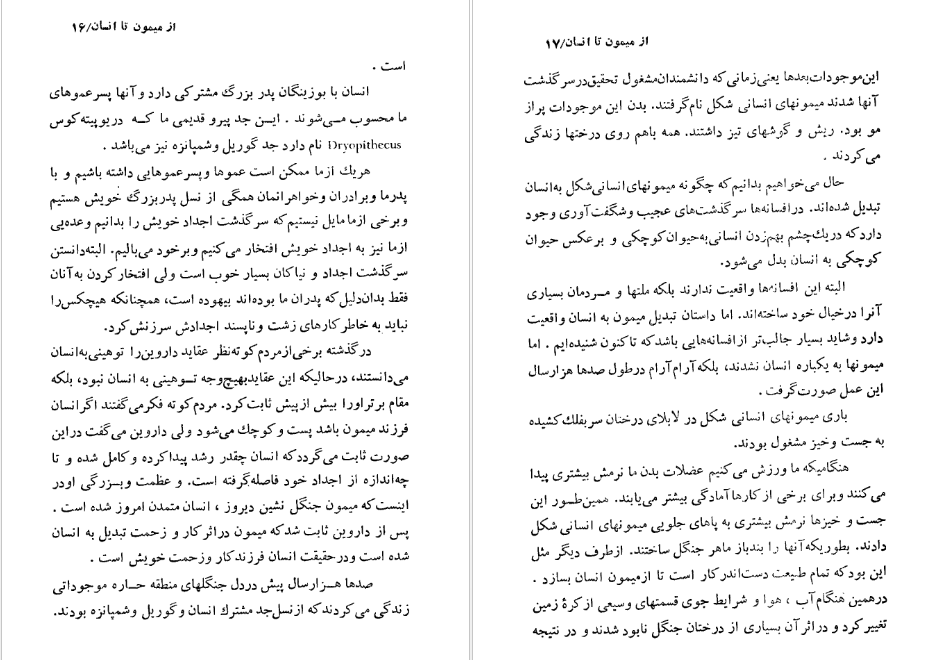 از میمون تا انسان/۱۶
است .
انسان با بوزینگان پدر بزرگ مشترکی دارد و آنها پسرعموهای
ما محسوب مـی‌شوند . ایـن جد پیرو قدیمی ما کـه دریوپیته‌کوس
Dryopithecus نام دارد جد گوریل وشمپانزه نیز می‌باشد .
هریك ازما ممکن است عموها وپسرعموهایی داشته باشیم و با
پدرما وبرادران وخواهرانمان همگی از نسل پدربزرگ خویش هستیم
وبرخی ازما مایل نیستیم که سرگذشت اجداد خویش را بدانیم وعده‌یی
ازما نیز به اجداد خویش افتخار می‌کنیم وبرخود می‌بالیم. البته‌دانستن
سرگذشت اجداد و نیاکان بسیار خوب است ولی افتخار کردن به‌آنان
فقط بدان‌دلیل‌که پدران ما بوده‌اند بیهوده است، همچنانکه هیچکس‌را
نباید به خاطر کارهای زشت وناپسند اجدادش سرزنش‌کرد.
درگذشته برخی‌ازمردم کوته‌نظر عقاید داروین‌را توهینی‌به‌انسان
می‌دانستند، درحالیکه این عقایدبهیچ‌وجه تـوهینی به انسان نبود، بلکه
مقام برتراورا بیش ازپیش ثابت‌کرد. مردم‌کوته فکرمی‌گفتند اگرانسان
فرزند میمون باشد پست وکوچك می‌شود ولی داروین می‌گفت دراین
صورت ثابت می‌گرددکه انسان چقدر رشد پیداکرده وکامل شده و تا
چه‌اندازه از اجداد خود فاصله‌گرفته است. و عظمت وبـزرگی اودر
اینست‌که میمون جنگل نشین دیروز ، انسان متمدن امروز شده است .
پس از داروین ثابت شدکه میمون دراثرکار و زحمت تبدیل به انسان
شده است ودرحقیقت انسان فرزندکار وزحمت خویش است .
صدها هـزارسال پیش دردل جنگلهای منطقه حـاره موجوداتی
زندگی می‌کردندکه ازنسل‌جد مشترك انسان وگوریل وشمپانزه بودند.
از میمون تا انسان/۱۷
این‌موجودات‌بعدها یعنی‌زمانی‌که دانشمندان‌مشغول تحقیق‌درسرگذشت
آنها شدند میمونهای انسانی شکل نام‌گرفتند. بدن این موجودات پراز
مو بود. ریش و گوشهای تیز داشتند. همه باهم روی درختها زندگی
می‌کردند .
حال می‌خواهیم بدانیم‌که چگونه میمونهای‌انسانی‌شکل به‌انسان
تبدیل شده‌اند. درافسانه‌ها سرگذشت‌های عجیب وشگفت‌آوری وجود
داردکه دریك‌چشم بهم‌زدن انسانی‌به‌حیوان‌کوچکی و برعکس حیوان
کوچکی به انسان بدل می‌شود.
البته این افسانه‌ها واقعیت ندارند بلکه ملتها و مـردمان بسیاری
آنرا درخیال خود ساخته‌اند. اما داستان تبدیل میمون به انسان واقعیت
دارد وشاید بسیار جالب‌تر ازافسانه‌هایی باشدکه تاکنون شنیده‌ایم . اما
میمونها به یکباره انسان نشدند، بلکه‌آرام‌آرام درطول صدها هزارسال
این عمل صورت‌گرفت .
باری میمونهای انسانی شکل در لابلای درختان سربفلك‌کشیده
به جست وخیز مشغول بودند.
هنگامیکه ما ورزش می‌کنیم عضلات بدن ما نرمش بیشتری پیدا
می‌کنند وبرای برخی از کارها آمادگی بیشتر می‌یابند. همین‌طـور این
جست و خیزها نرمش بیشتری به پاهای جلویی میمونهای انسانی شکل
دادند. بطوریکه‌آنها را بندباز ماهر جنگل ساختند. ازطرف دیگر مثل
این بودکه تمام طبیعت دست‌اندرکار است تا ازمیمون انسان بسازد .
درهمین هنگام‌آب ، هوا و شرایط جوی قسمتهای وسیعی ازکرهٔ زمین
تغییرکرد و دراثرآن بسیاری از درختان جنگل نابود شدند و در نتیجه